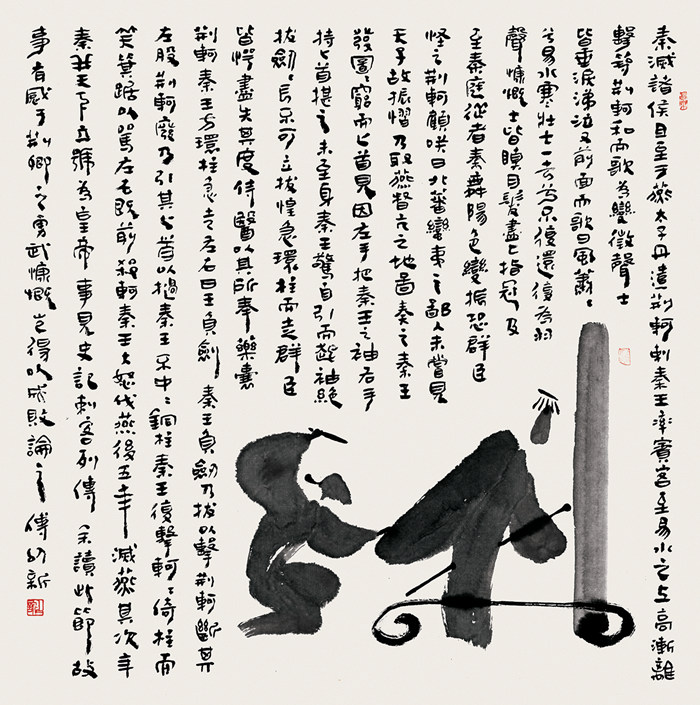 秦滅諸侯且至于燕太子丹遣荆軻刺秦王率賓客至易水之上高漸離
擊筑荆軻和而歌為變徵聲士
皆垂淚涕泣又前面而歌曰風蕭〻
兮易水寒壯士一去兮不復還復為羽
聲慷慨士皆瞋目髮盡上指冠及
至秦庭從者秦舞陽色變振恐群臣
怪之荆軻顧咲曰北蕃蠻夷之鄙人未嘗見
天子故振慴乃取燕督亢之地圖奏之秦王
發圖〻窮而匕首見因左手把秦王之袖右手
持匕首揕之未至身秦王驚自引而起袖絕
拔劍〻長不可立拔惶急環柱而走群臣
皆愕盡失其度侍醫以其所奉藥囊
荆軻秦王方環柱急走左右曰王負劍秦王負劍乃拔以擊荆軻斷其
左股荆軻廢乃引其匕首以擿秦王不中〻銅柱秦王復擊軻〻倚柱而
笑箕踞以罵左右既前殺軻秦王大怒伐燕後五年滅燕其次年
秦并天下立號為皇帝事見史記刺客列傳余讀此節故
事有感于荆卿之勇武慷慨豈得以成敗論之傅幼新